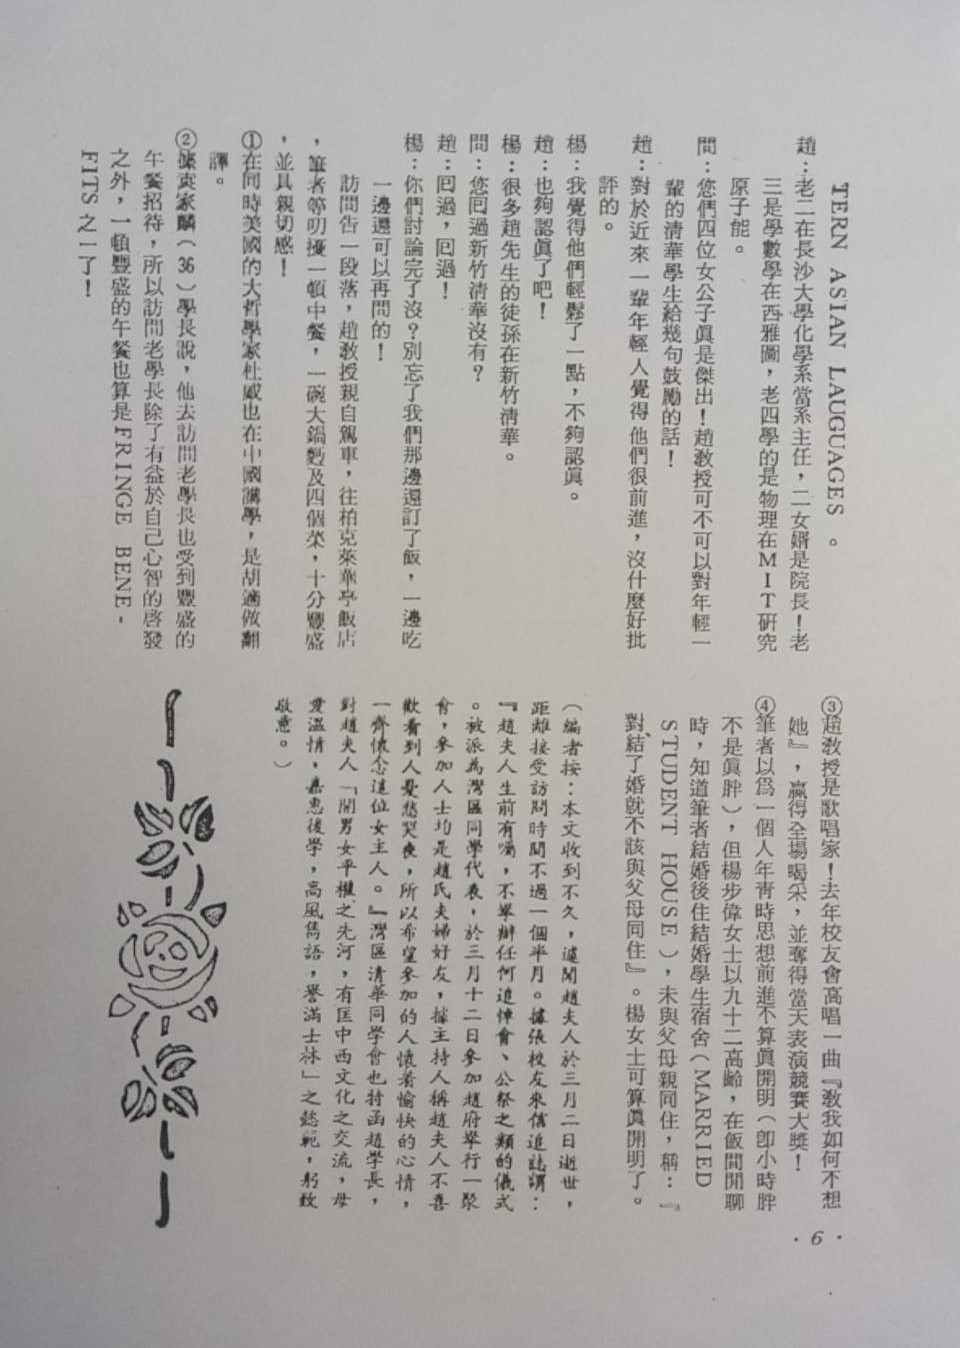 TERN ASIAN LAUGUAGES 。
趙：老二在長沙大學化學系當系主任，二女婿是院長！老
三是學數學在西雅圖，老四學的是物理在MIT研究
原子能。
問：您們四位女公子眞是傑出！趙敎授可不可以對年輕一
輩的清華學生給幾句鼓勵的話！
趙：對於近來一輩年輕人覺得他們很前進，沒什麼好批
評的。
楊：我覺得他們輕鬆了一點，不夠認眞。
趙：也夠認眞了吧！
楊：很多趙先生的徒孫在新竹清華。
問：您囘過新竹清華沒有？
趙：囘過，囘過！
楊：你們討論完了沒？別忘了我們那邊還訂了飯，一邊吃
一邊還可以再問的！
訪問告一段落，趙敎授親自駕車，往柏克萊華亭飯店
，筆者等叨擾一頓中餐，一碗大鍋麪及四個菜，十分豐盛
，並具親切感！
①在同時美國的大哲學家杜威也在中國講學，是胡適做翻
譯。
②據袁家麟（36）學長說，他去訪問老學長也受到豐盛的
午餐招待，所以訪問老學長除了有益於自己心智的啓發
之外，一頓豐盛的午餐也算是FRINGE BENE-
FITS之一了！
③趙敎授是歌唱家！去年校友會高唱一曲『敎我如何不想
她』，贏得全場喝采，並奪得當天表演競賽大獎！
④筆者以爲一個人年靑時思想前進不算眞開明（卽小時胖
不是眞胖），但楊步偉女士以九十二高齡，在飯間閒聊
時，知道筆者結婚後住結婚學生宿舍（MARRIED
STUDENT HOUSE），未與父母親同住，稱：『
對，結了婚就不該與父母同住』。楊女士可算眞開明了。
（編者按：本文收到不久，遽聞趙夫人於三月二日逝世，
距離接受訪問時間不過一個半月。據張校友來信追誌謂：
『趙夫人生前有囑，不舉辦任何追悼會、公祭之類的儀式
。被派為灣區同學代表，於三月十二日參加趙府舉行一聚
會，參加人士均是趙氏夫婦好友，據主持人稱趙夫人不喜
歡看到人憂愁哭喪，所以希望參加的人懷着愉快的心情，
一齊懷念這位女主人。』灣區清華同學會也特函趙學長，
對趙夫人「開男女平權之先河，有匡中西文化之交流，母
愛溫情，嘉惠後學，高風雋語，譽滿士林」之懿範，躬致
敬意。）
·6·